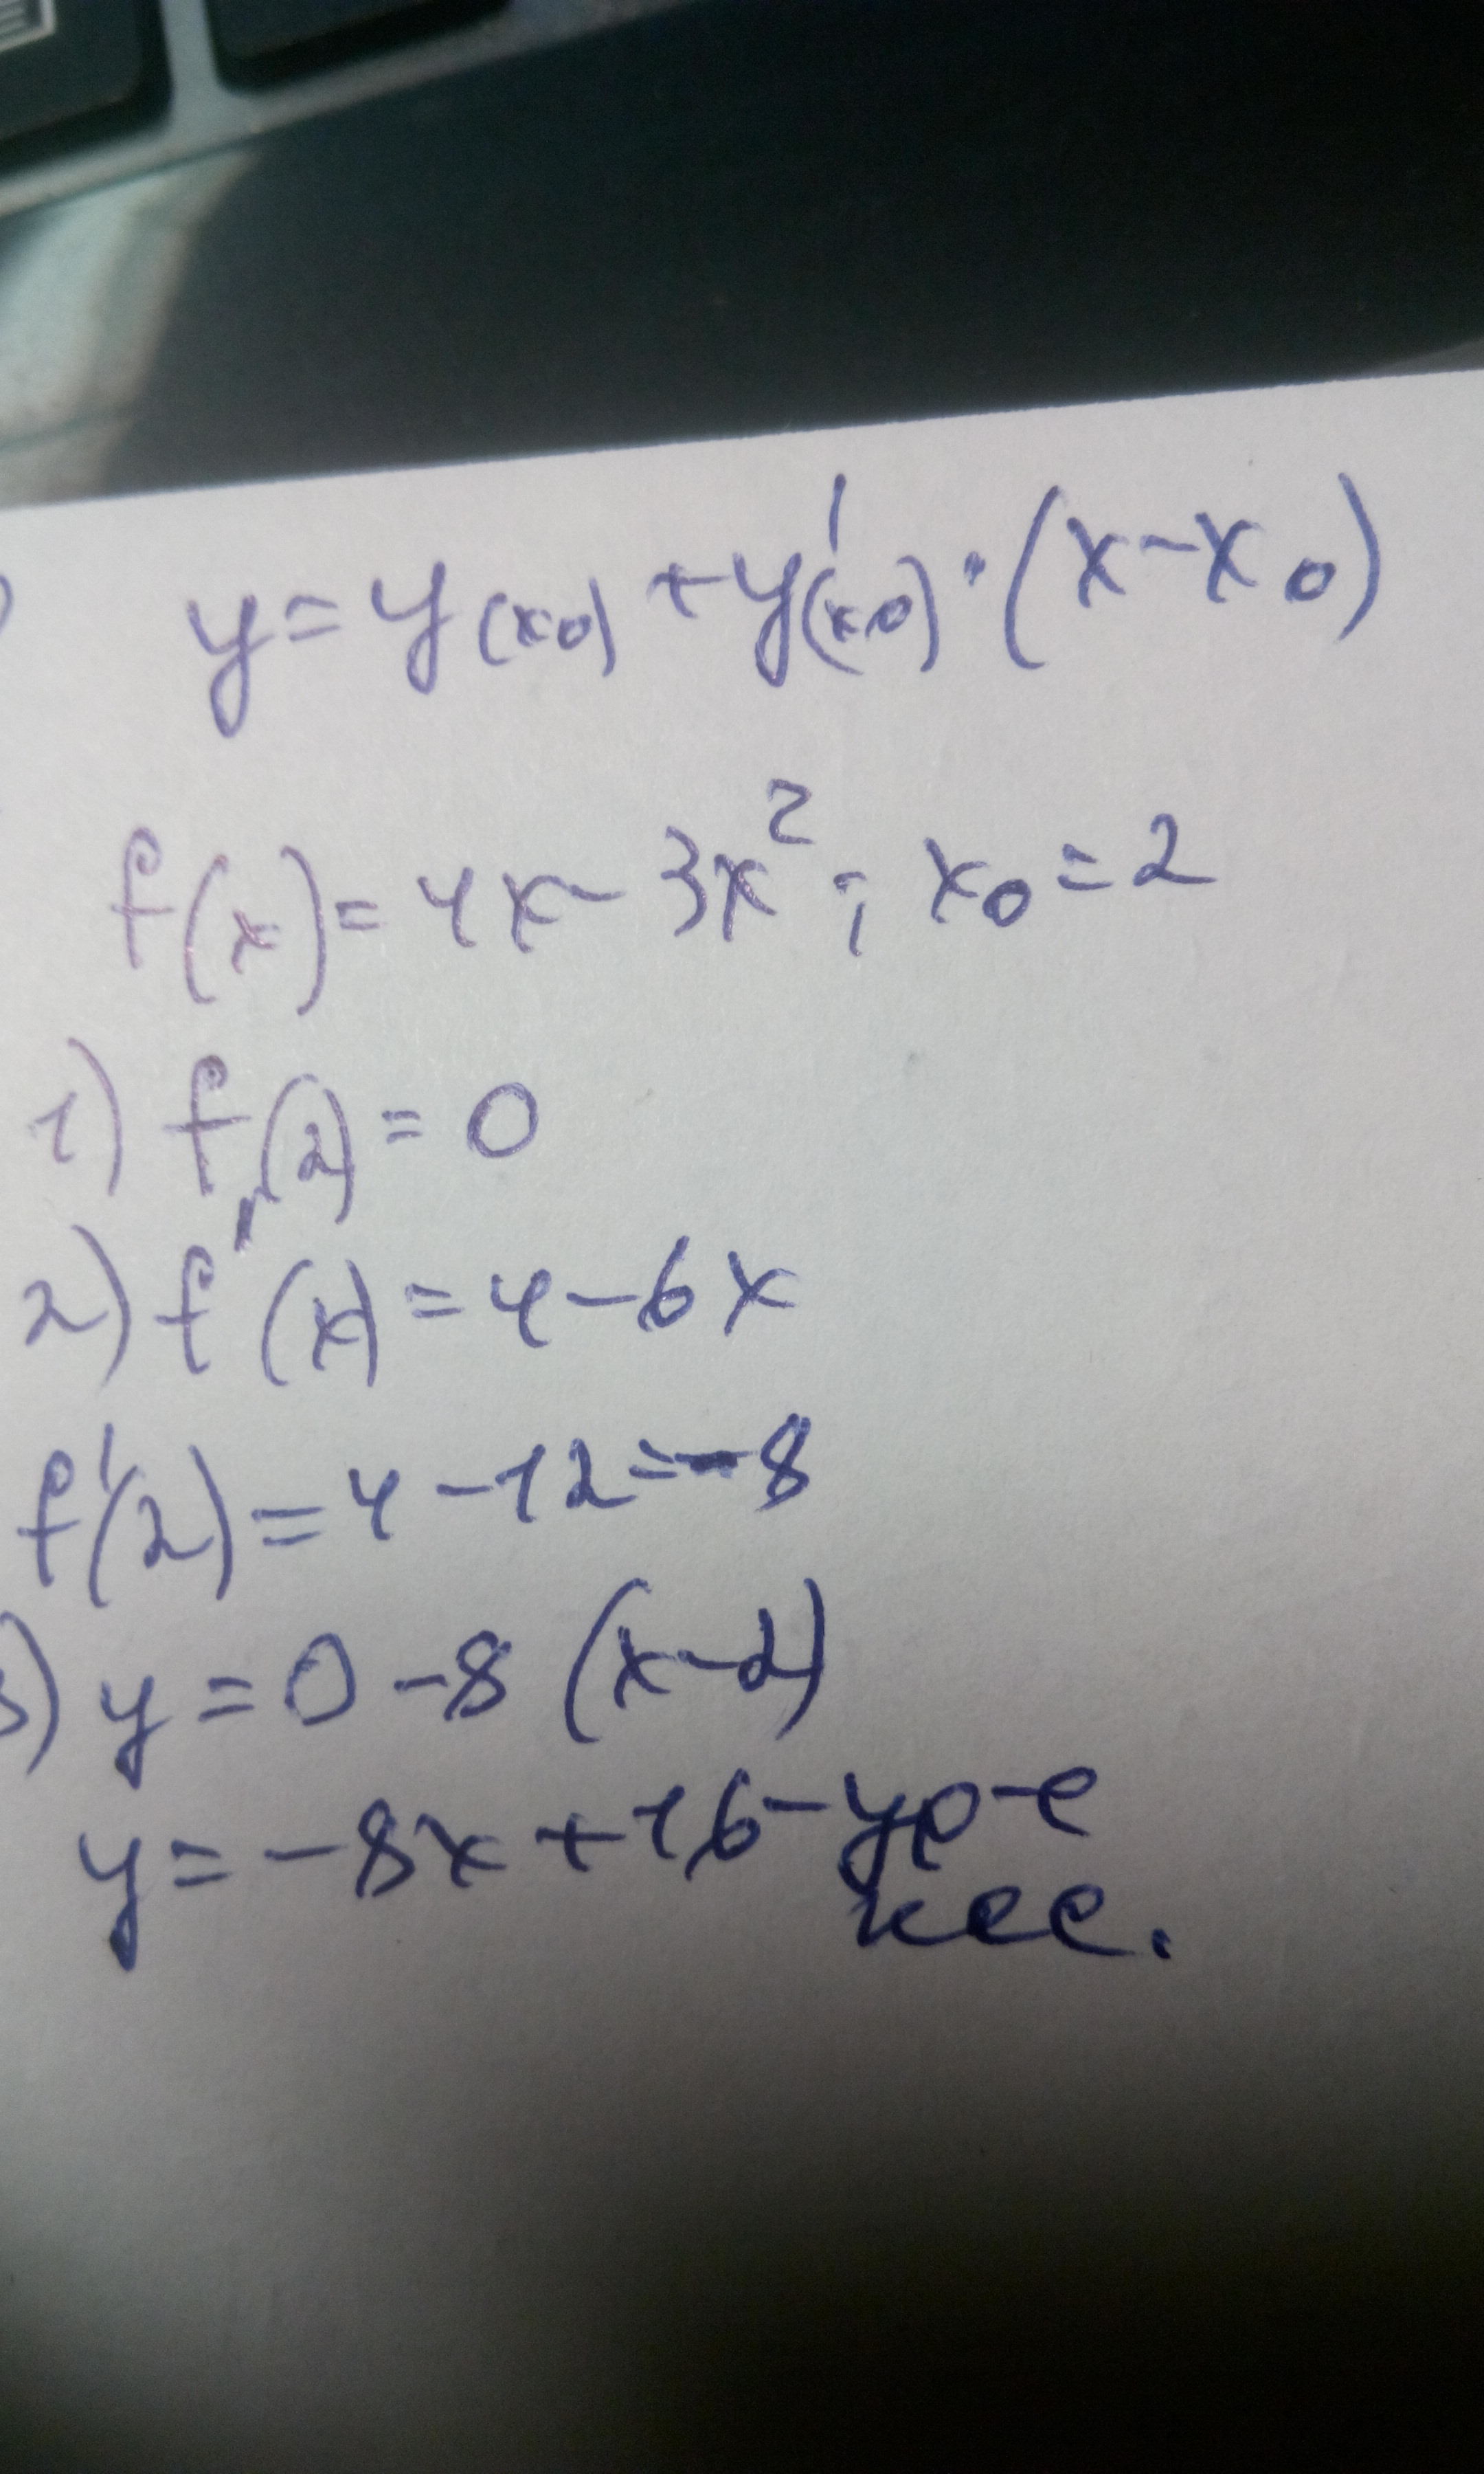 y = y(x₀) + y'(x₀) · (x - x₀)
f(x) = 4x - 3x² ; x₀ = 2
1) f(2) = 0
2) f'(x) = 4 - 6x
f'(2) = 4 - 12 = -8
3) y = 0 - 8 (x - 2)
y = -8x + 16 - ур-е
кас.